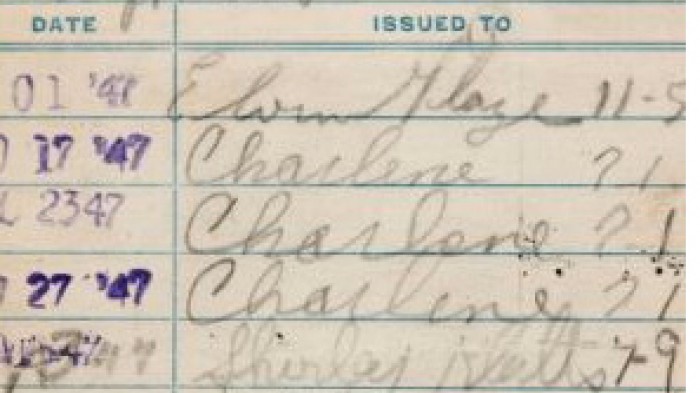 DATE ISSUED TO
01 '47 Elvin Glaze 11-5
17 '47 Charlene 7 1
2347 Charlene 7 1
27 '47 Charline 7 1
47 Shirley Watts 7-9